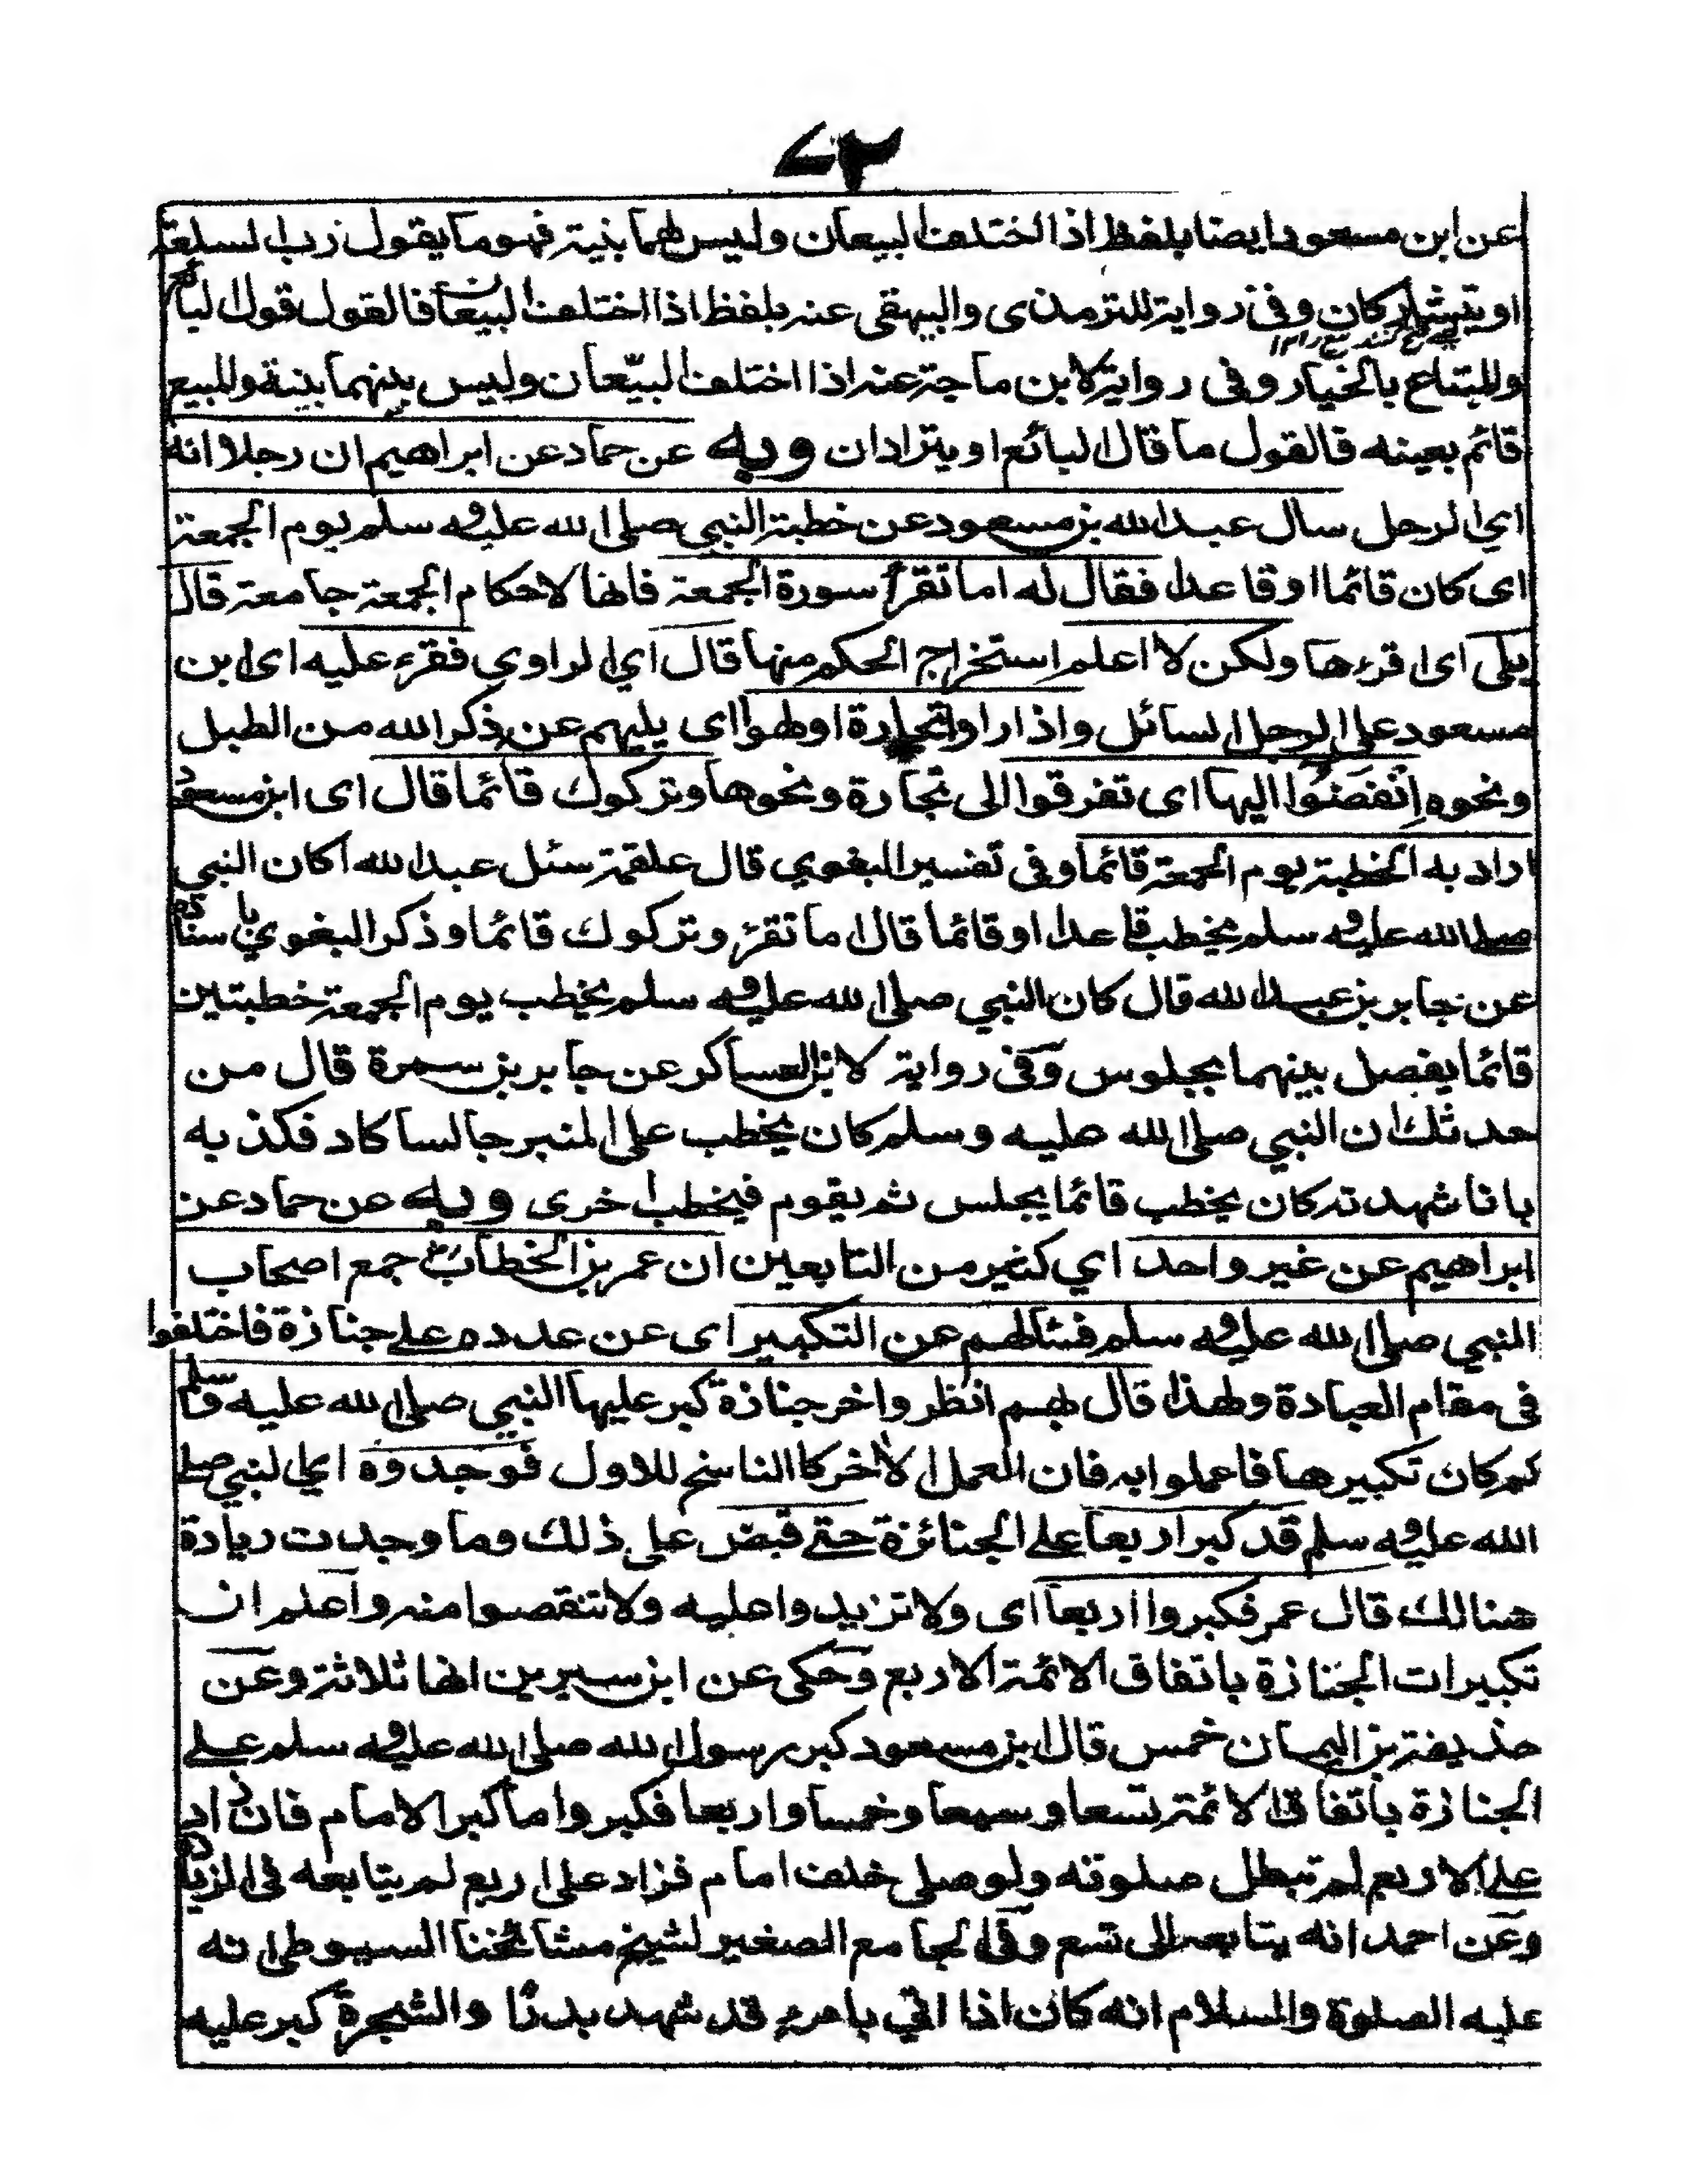 ٧٢
عن ابن مسعود ايضا بلفظ اذا اختلف البيعان وليس لهما بنية فهو ما يقول رب السلعة
او يتشاركان وفى رواية للترمذى والبيهقى عنه بلفظ اذا اختلف البيعان فالقول قول البائع
وللمبتاع بالخيار وفى رواية لابن ماجة عنه اذا اختلف البيّعان وليس بينهما بنية وللبيع
قائم بعينه فالقول ما قال البائع او يترادان وبه عن حماد عن ابراهيم ان رجلا انه
اي الرجل سال عبد الله بن مسعود عن خطبة النبي صلى الله عليه وسلم يوم الجمعة
اى كان قائما اوقاعدا فقال له اما تقرأ سورة الجمعة فانها لاحكام الجمعة جامعة قال
بلى اى اقرءها ولكن لا اعلم استخراج الحكم منها قال اي الراوي فقرء عليه اى ابن
مسعود على الرجل السائل واذا راوا تجارة اولهوا اى يلهيهم عن ذكر الله من الطبل
ونحوه اِنْفَضُّوا اليها اى تفرقوا الى تجارة ونحوها وتركوك قائما قال اى ابن مسعود
اراد به الخطبة يوم الجمعة قائما وفى تفسير البغوي قال علقمة سئل عبد الله اكان النبي
صلى الله عليه وسلم يخطب قاعدا اوقائما قال اما تقرؤ وتركوك قائما وذكر البغوي باسناده
عن جابر بن عبد الله قال كان النبي صلى الله عليه وسلم يخطب يوم الجمعة خطبتين
قائما يفصل بينهما بجلوس وفى رواية لابن العساكر عن جابر بن سمرة قال من
حدثك ان النبي صلى الله عليه وسلم كان يخطب على المنبر جالسا كاد فكذبه
بانا شهدته كان يخطب قائما يجلس ثم يقوم فيخطب اخرى وبه عن حماد عن
ابراهيم عن غير واحد اي كثير من التابعين ان عمر بن الخطاب جمع اصحاب
النبي صلى الله عليه وسلم فسئالهم عن التكبير اى عن عدده على جنازة فاختلفوا
فى مقام العبادة ولهذا قال لهم انظروا اخر جنازة كبر عليها النبي صلى الله عليه وسلم
كم كان تكبيرها فاعملوا به فان العمل الاخر كالناسخ للاول فوجدوه اي النبي صلى
الله عليه وسلم قد كبر اربعا على الجنائزة حتى قبض على ذلك وما وجدت زيادة
هنالك قال عمر فكبروا اربعا اى ولا تزيدوا عليه ولا تنقصوا منه واعلم ان
تكبيرات الجنازة باتفاق الائمة الاربع وحكى عن ابن سيرين انها ثلاثة وعن
حذيفة بن اليمان خمس قال ابن مسعود كبر رسول الله صلى الله عليه وسلم على
الجنازة باتفاق الائمة تسعا وسبعا وخمسا واربعا فكبروا ما كبر الامام فان زاد
على الاربع لم تبطل صلوته ولو صلى خلف امام فزاد على اربع لم يتابعه فى الزيادة
وعن احمد انه يتابعه الى تسع وفى الجامع الصغير لشيخ مشائخنا السيوطى انه
عليه الصلوة والسلام انه كان اذا اتي بامرء قد شهد بدرًا والشجرة كبر عليه